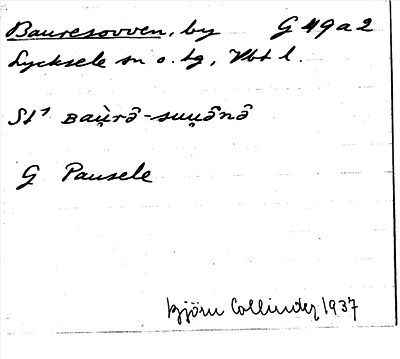 Bauresovven, by G 49 a 2
Lycksele sn o. tg, Vbt l.
St⁷ Baụ̀rô-suụônô
G Pausele
Björn Collinder 1937